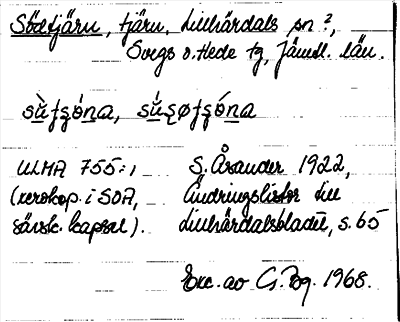 Södtjärn, tjärn, Lillhärdals sn 2,
Svegs o. Hede tg, Jämtl. län.
ULMA 755:1 S. Åsander 1922,
(xerokop. i SOA, Ändringslistor till
särsk. kapsel). Lillhärdalsbladet, s. 65
Exc. av G. Bg. 1968.